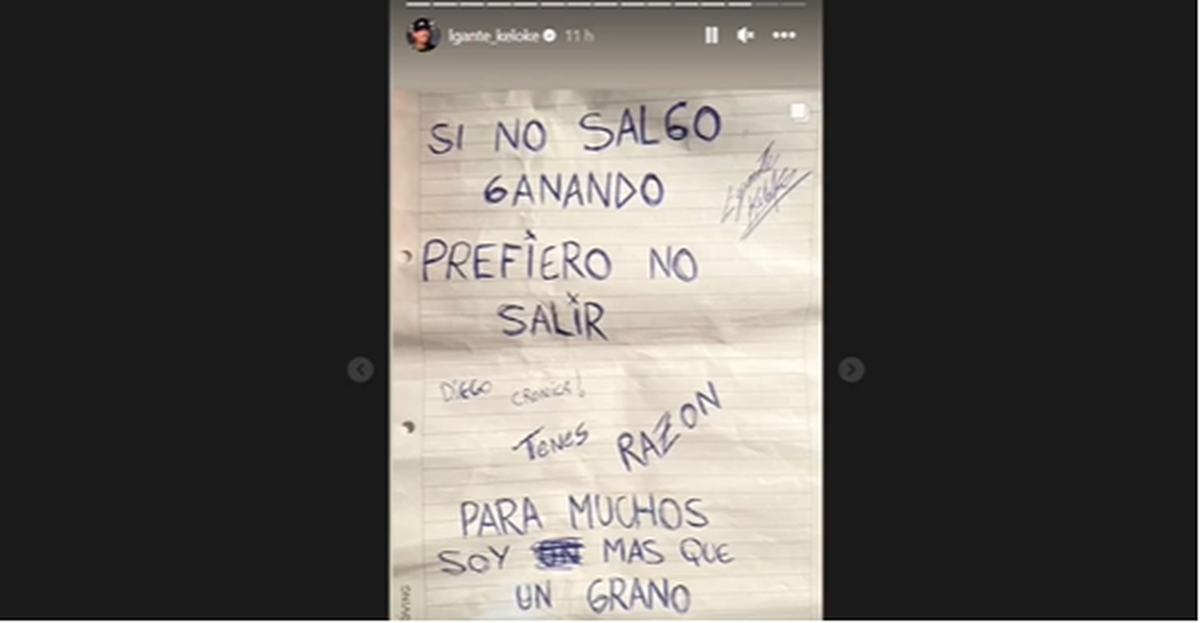 lgante_keloke 11 h
SI NO SALGO
GANANDO
PREFIERO NO
SALIR
DIEGO CRONICA!
TENES RAZON
PARA MUCHOS
SOY UN MAS QUE
UN GRANO